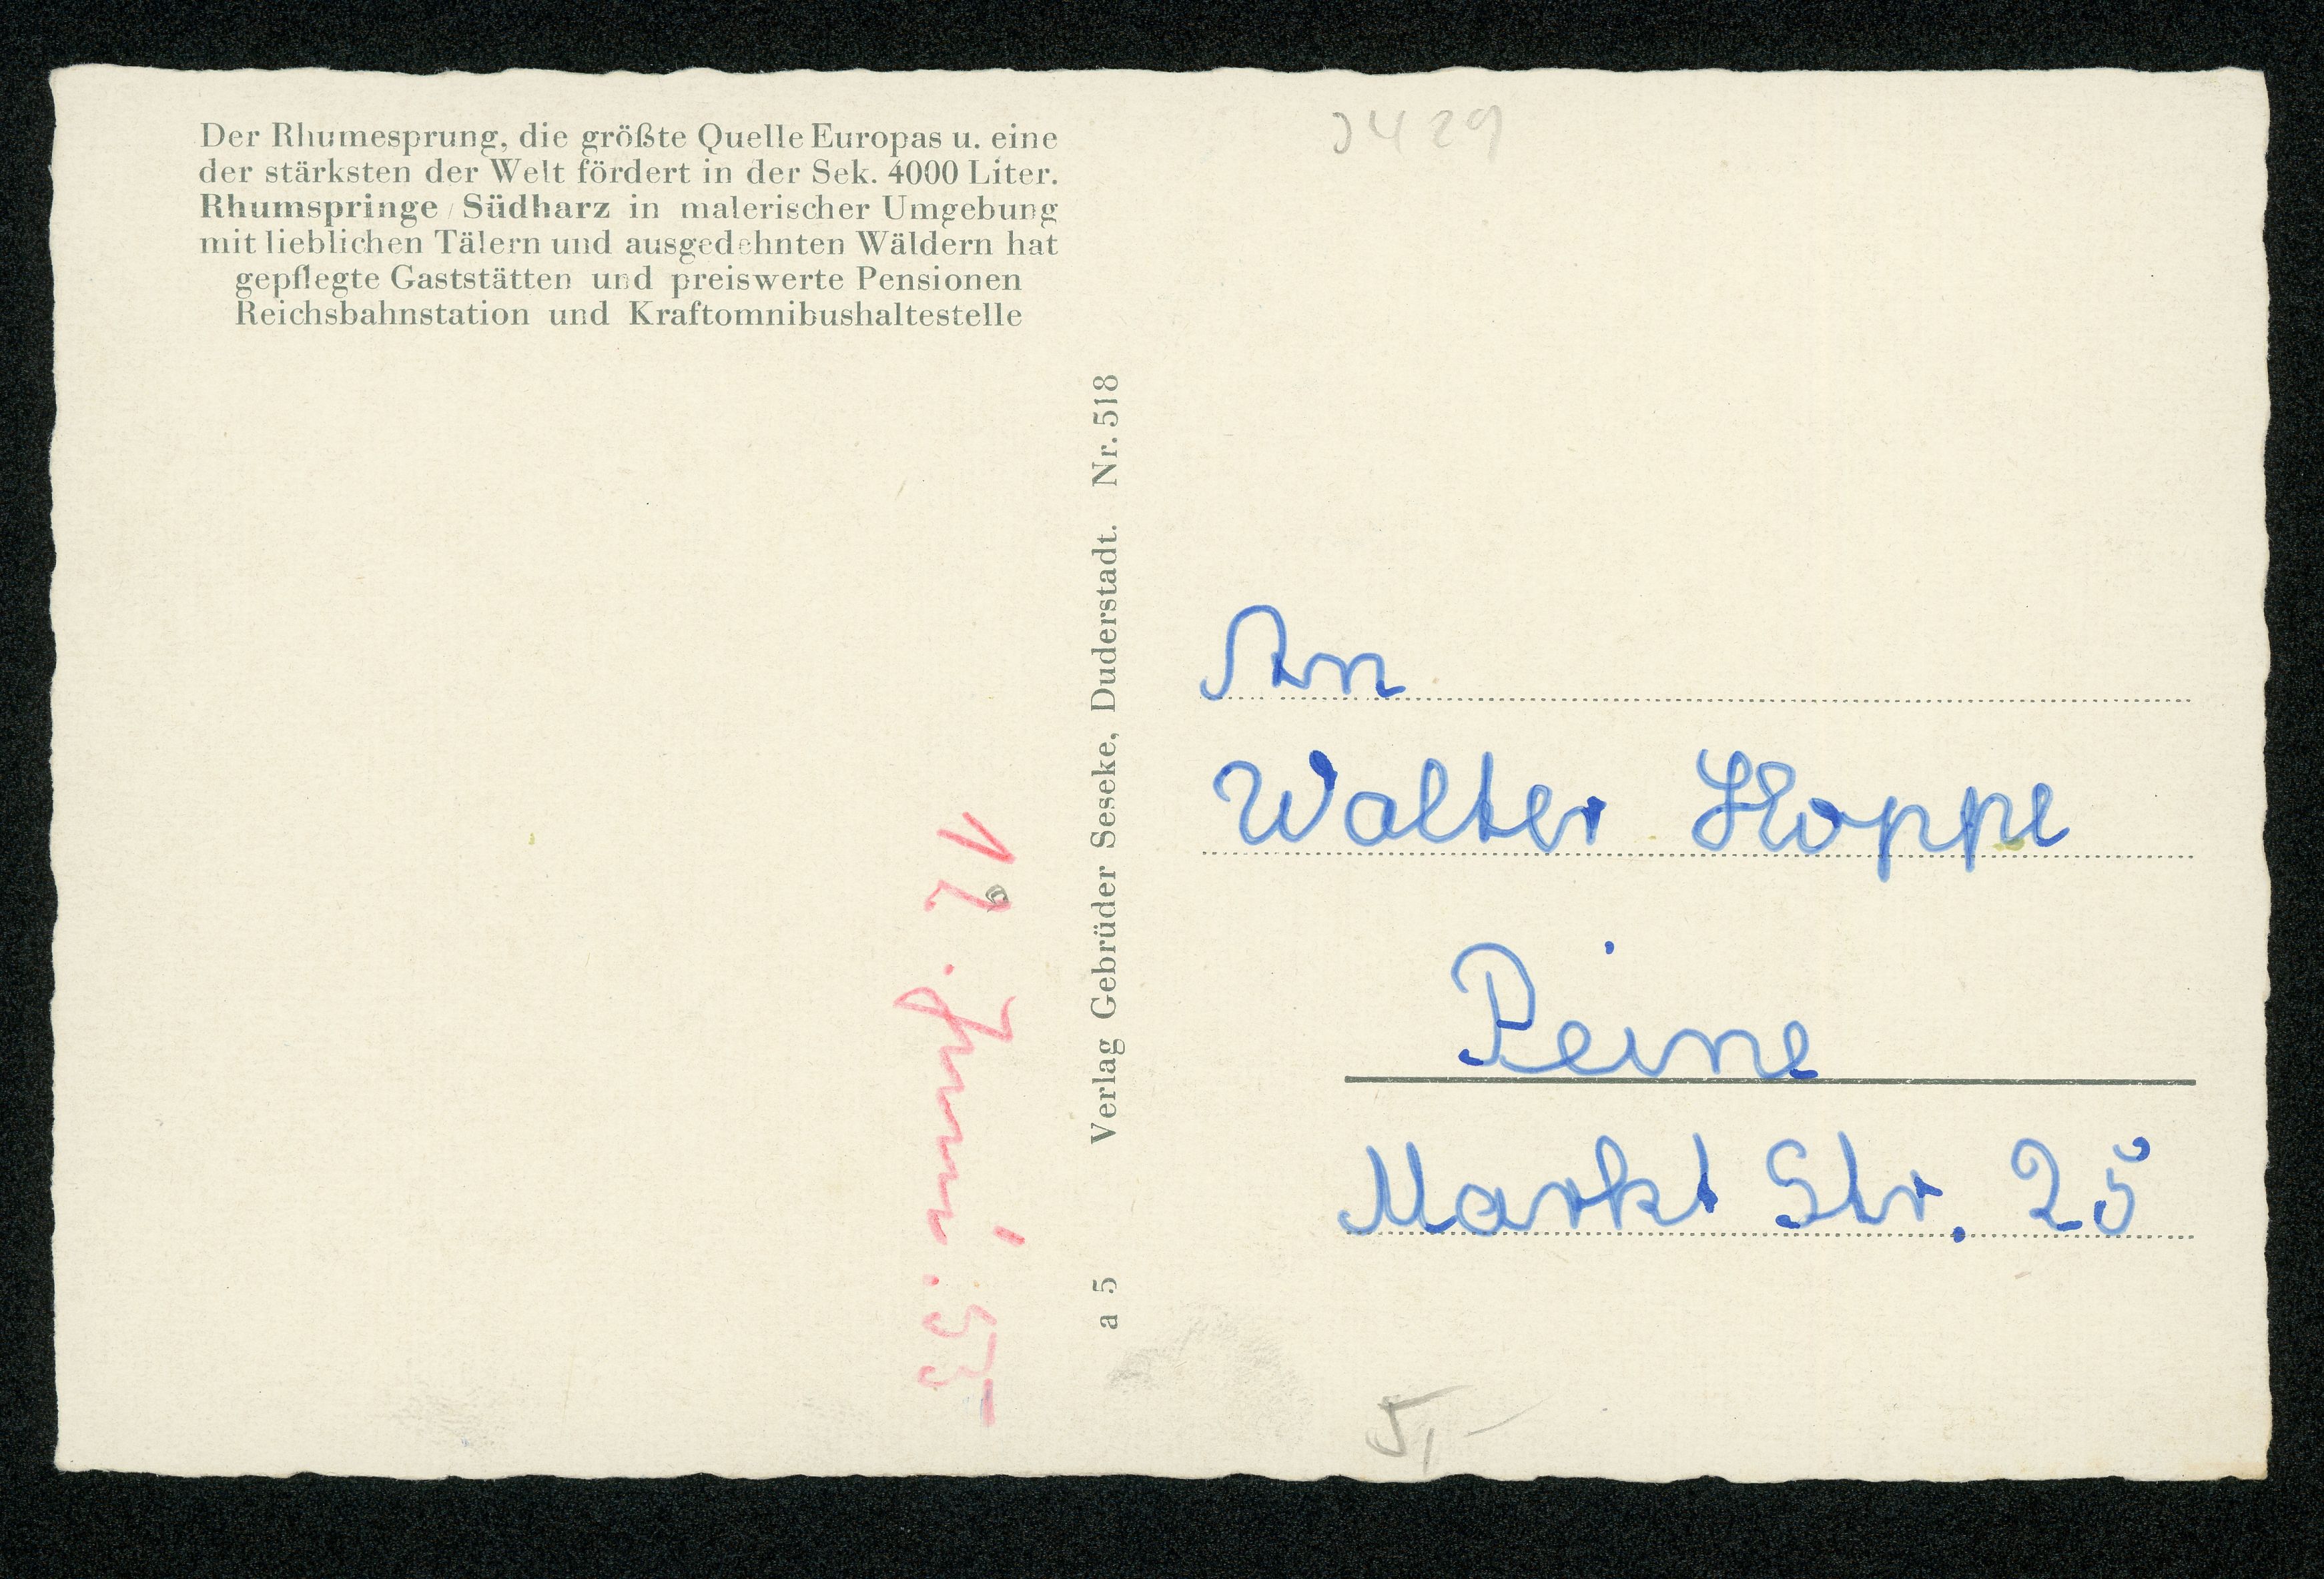 Der Rhumesprung, die größte Quelle Europas u. eine
der stärksten der Welt fördert in der Sek. 4000 Liter.
Rhumspringe / Südharz in malerischer Umgebung
mit lieblichen Tälern und ausgedehnten Wäldern hat
gepflegte Gaststätten und preiswerte Pensionen
Reichsbahnstation und Kraftomnibushaltestelle
12. Juni. 53
a 5 Verlag Gebrüder Seseke, Duderstadt. Nr. 518
An
Walter Hoppe
Peine
Markt Str. 25
5,-